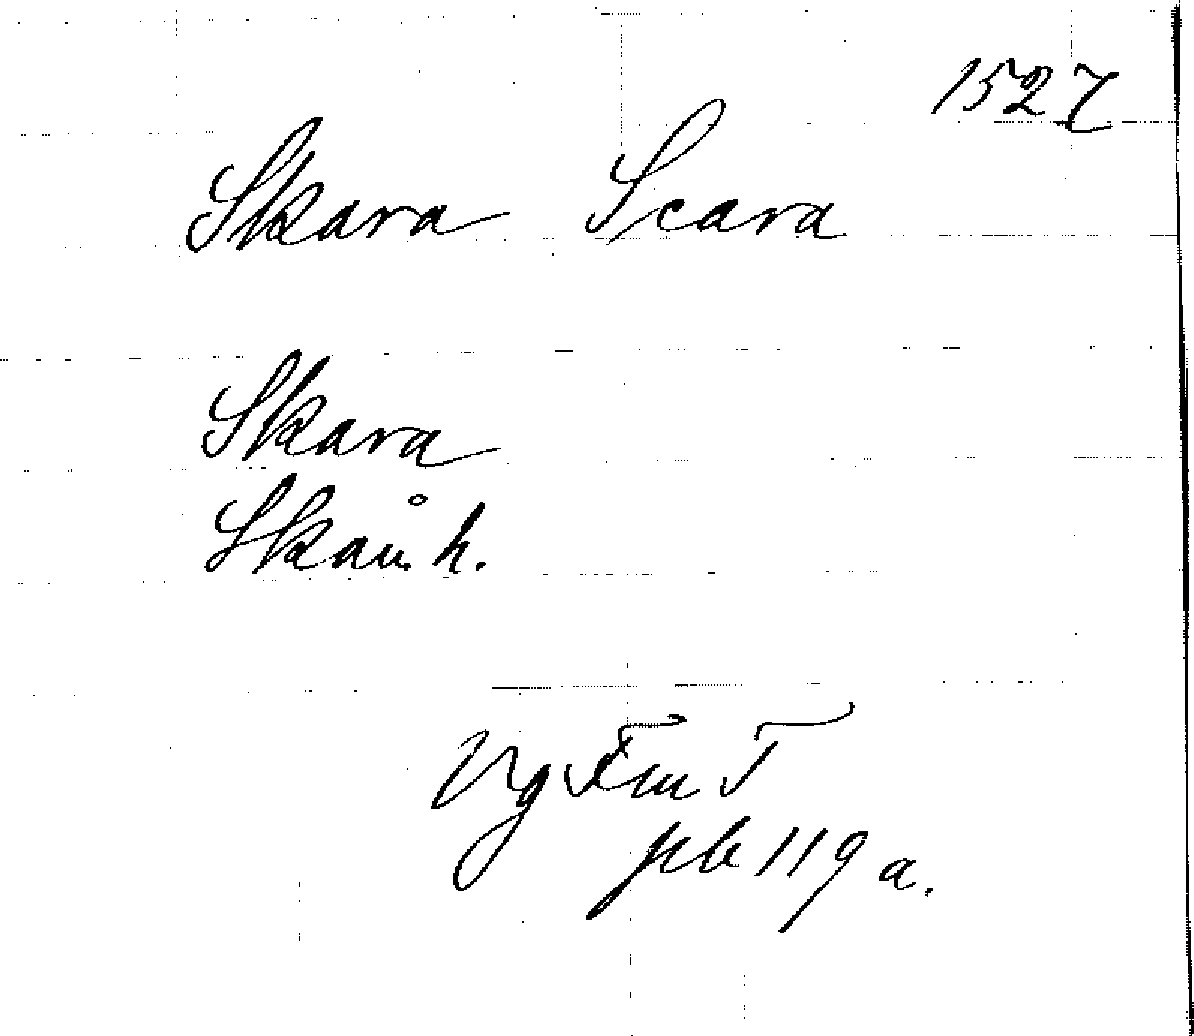 1527
Skara Scara
Skara
Skån. h.
Vg
pb 119 a.